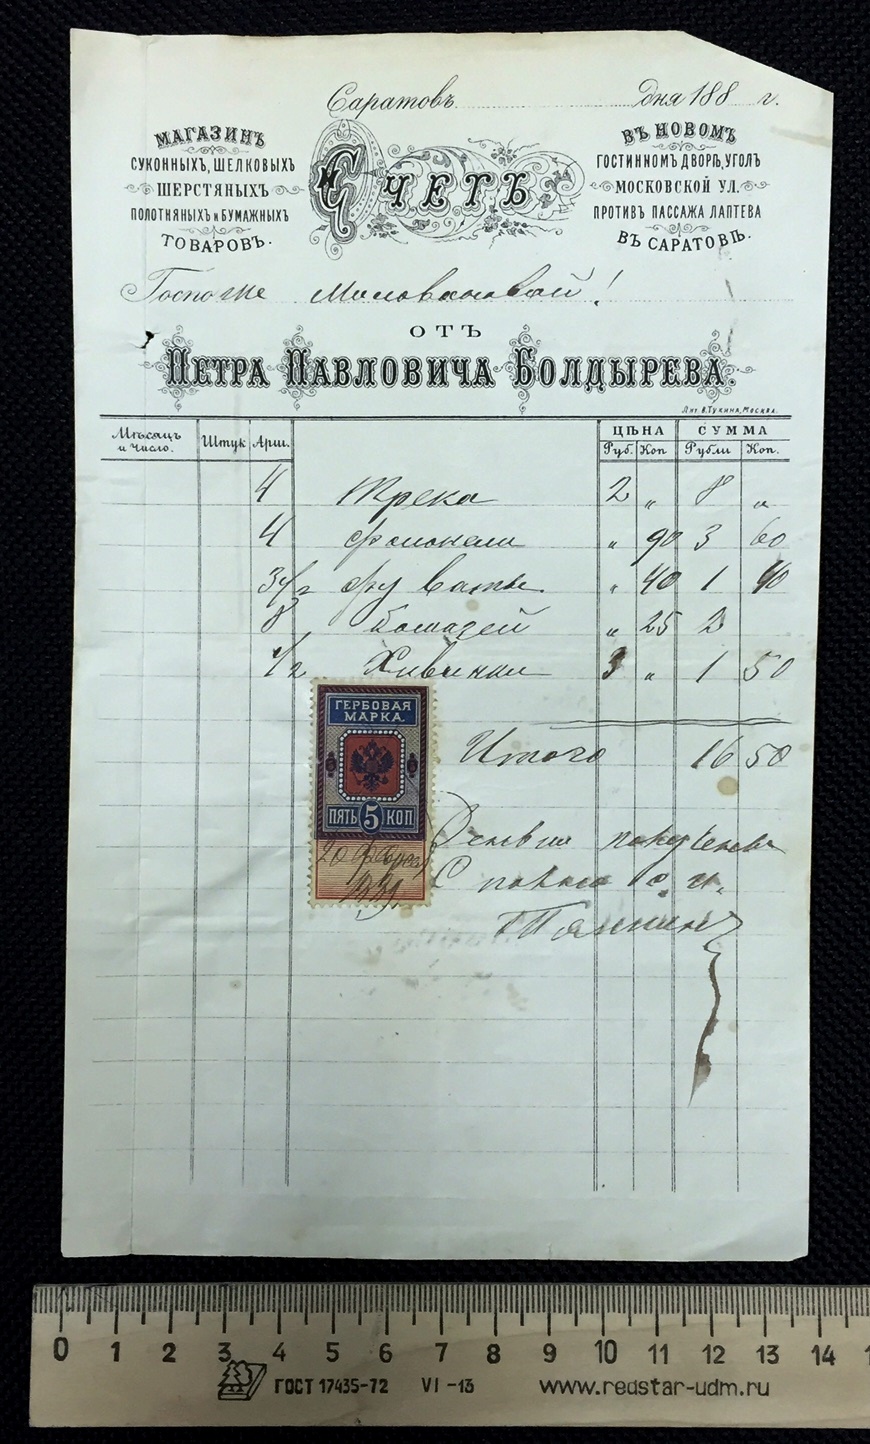 Саратовъ дня 188 г.
МАГАЗИНЪ
СУКОННЫХЪ, ШЕЛКОВЫХЪ
ШЕРСТЯНЫХЪ
ПОЛОТНЯНЫХЪ и БУМАЖНЫХЪ
ТОВАРОВЪ.
СЧЕТЪ
ВЪ НОВОМЪ
ГОСТИННОМЪ ДВОРѢ, УГОЛЪ
МОСКОВСКОЙ УЛ.
ПРОТИВЪ ПАССАЖА ЛАПТЕВА
ВЪ САРАТОВѢ.
Госпоже
ОТЪ
ПЕТРА ПАВЛОВИЧА БОЛДЫРЕВА.
Лит. В. Тукина, Москва.
Мѣсяцъ и Число. Штук Арш. ЦѢНА СУММА
Руб. Коп Рубли Коп.
4 трека 2 „ 8 „
4 „ 90 3 60
3 1/2 фу ваты „ 40 1 40
8 бомазей „ 25 2
1/2 3 „ 1 50
Итого 16 50
ГЕРБОВАЯ
МАРКА.
ПЯТЬ 5 КОП.
20
1881
0 1 2 3 4 5 6 7 8 9 10 11 12 13 14
ГОСТ 17435-72 VI-13 www.redstar-udm.ru